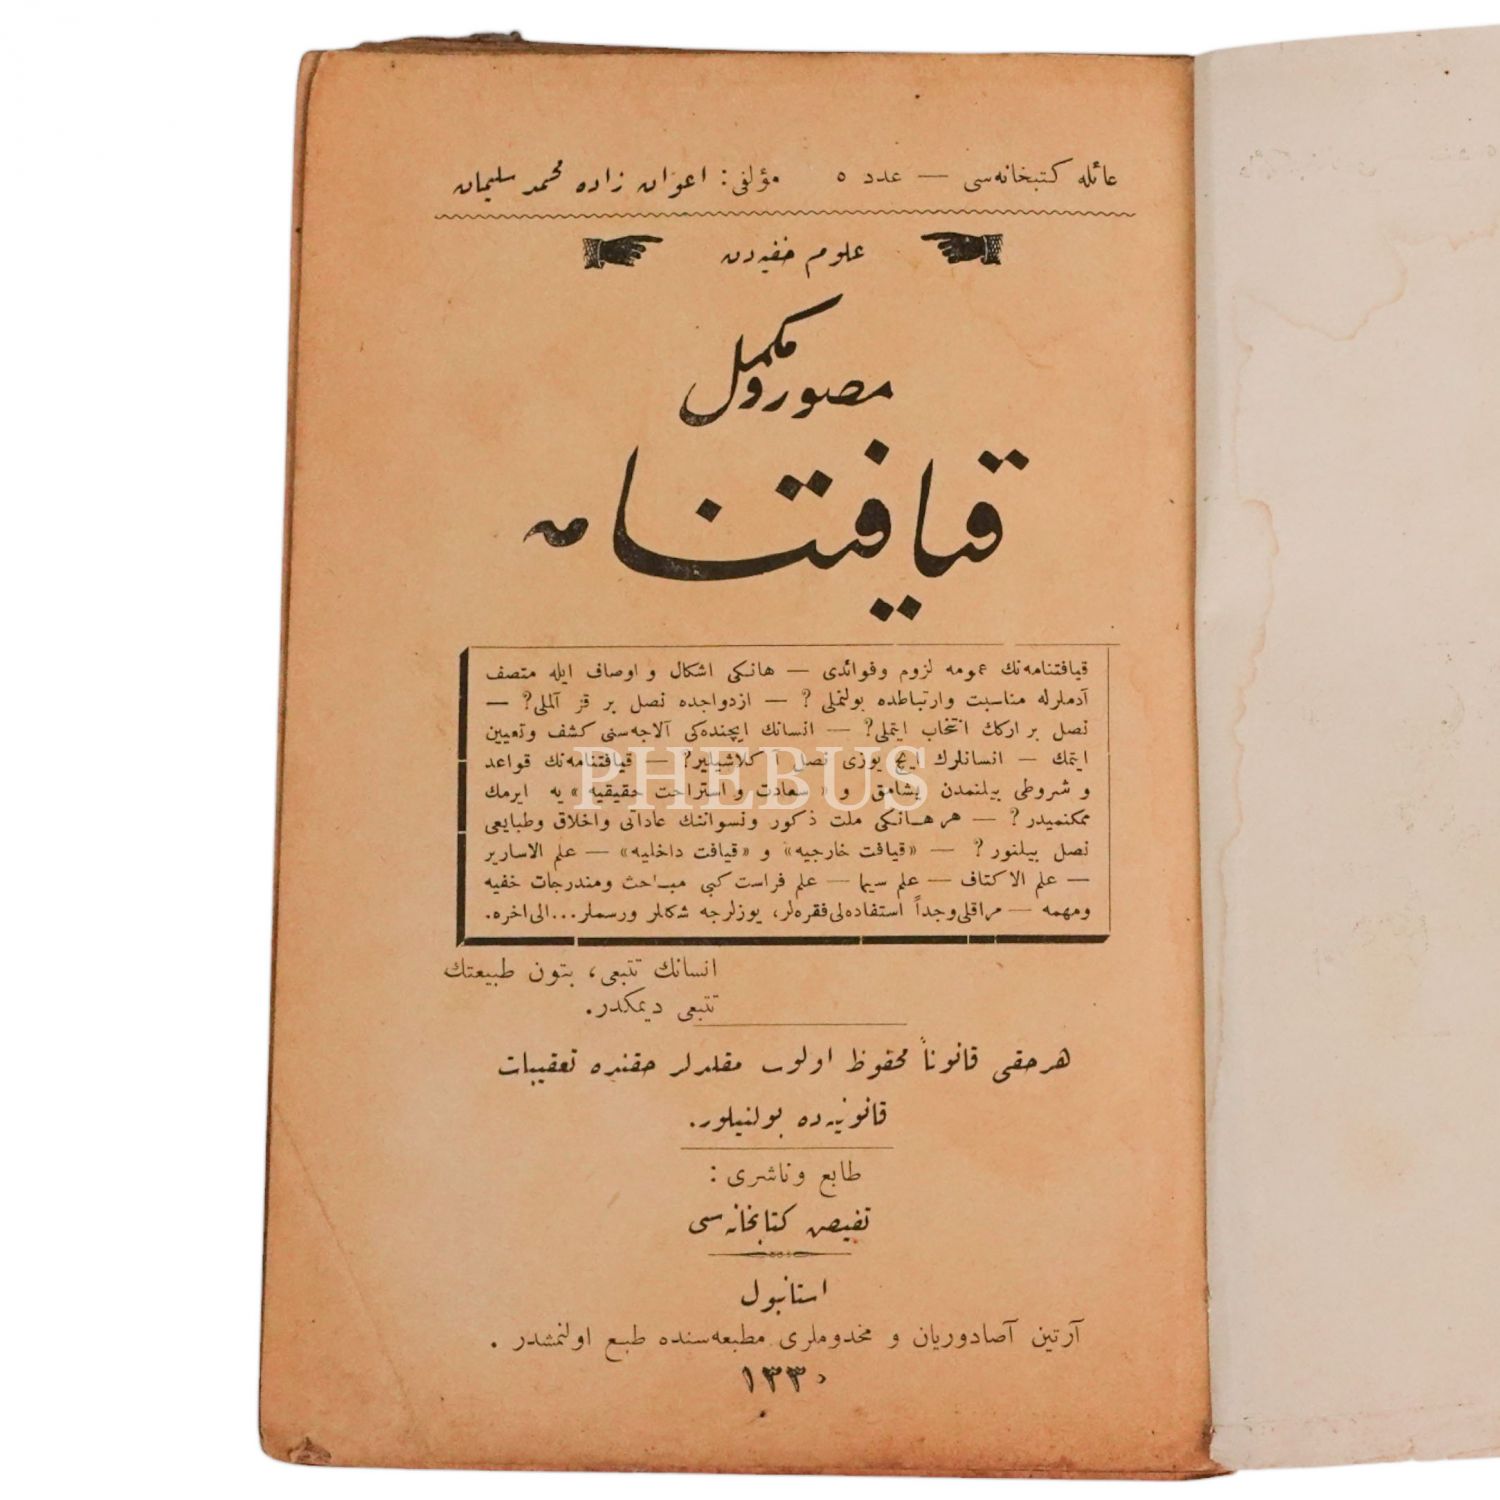 عائله كتبخانه‌سی — عدد ٥ مؤلفی: اعوان زاده محمد سلیمان
علوم خفیه‌دن
مصور ومكمل
قیافتنامه
قیافتنامه‌نك عمومه لزوم وفوائدی — هانكی اشكال و اوصاف ایله متصف
آدملرله مناسبت وارتباطده بولنملی؟ — ازدواجده نصل بر قز آلملی؟ —
نصل بر اركك انتخاب ایتملی؟ — انسانك ایچنده‌كی آلاجه‌سنی كشف وتعیین
ایتمك — انسانلرك ایچ یوزی نصل آ كلاشیلیر؟ — قیافتنامه‌نك قواعد
و شروطی بیلنمدن یشامق و «سعادت و استراحت حقیقیه» یه ایرمك
ممكنمیدر؟ — هر هانكی ملت ذكور ونسواننك عاداتی واخلاق وطبایعی
نصل بیلنور؟ — «قیافت خارجیه» و «قیافت داخلیه» — علم الاساریر
— علم الاكتاف — علم سیما — علم فراست كبی مباحث ومندرجات خفیه
ومهمه — مراقلی وجداً استفاده‌لی فقره‌لر، یوزلرجه شكللر ورسملر...الی اخره.
انسانك تتبعی، بتون طبیعتك
تتبعی دیمكدر.
هرحقی قانوناً محفوظ اولوب مقلدلر حقنده تعقیبات
قانونیه‌ده بولنیلور.
طابع وناشری:
تفیض كتابخانه‌سی
استانبول
آرتین آصادوریان و مخدوملری مطبعه‌سنده طبع اولنمشدر.
١٣٣٠
PHEBUS